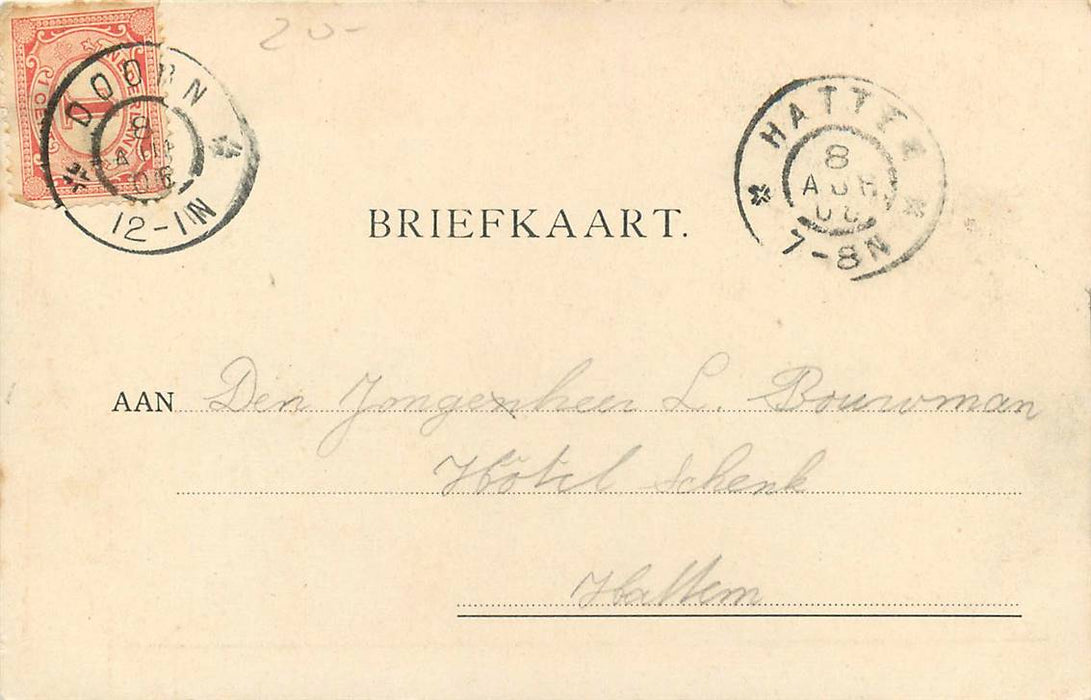 20-
NEDERLAND
1 CENT
1
DOORN
8
AUG
06
12-1N
HATTEM
8
AUG
7-8N
BRIEFKAART.
AAN Den Jongenheer L. Bouwman
Hôtel Schenk
Hattem